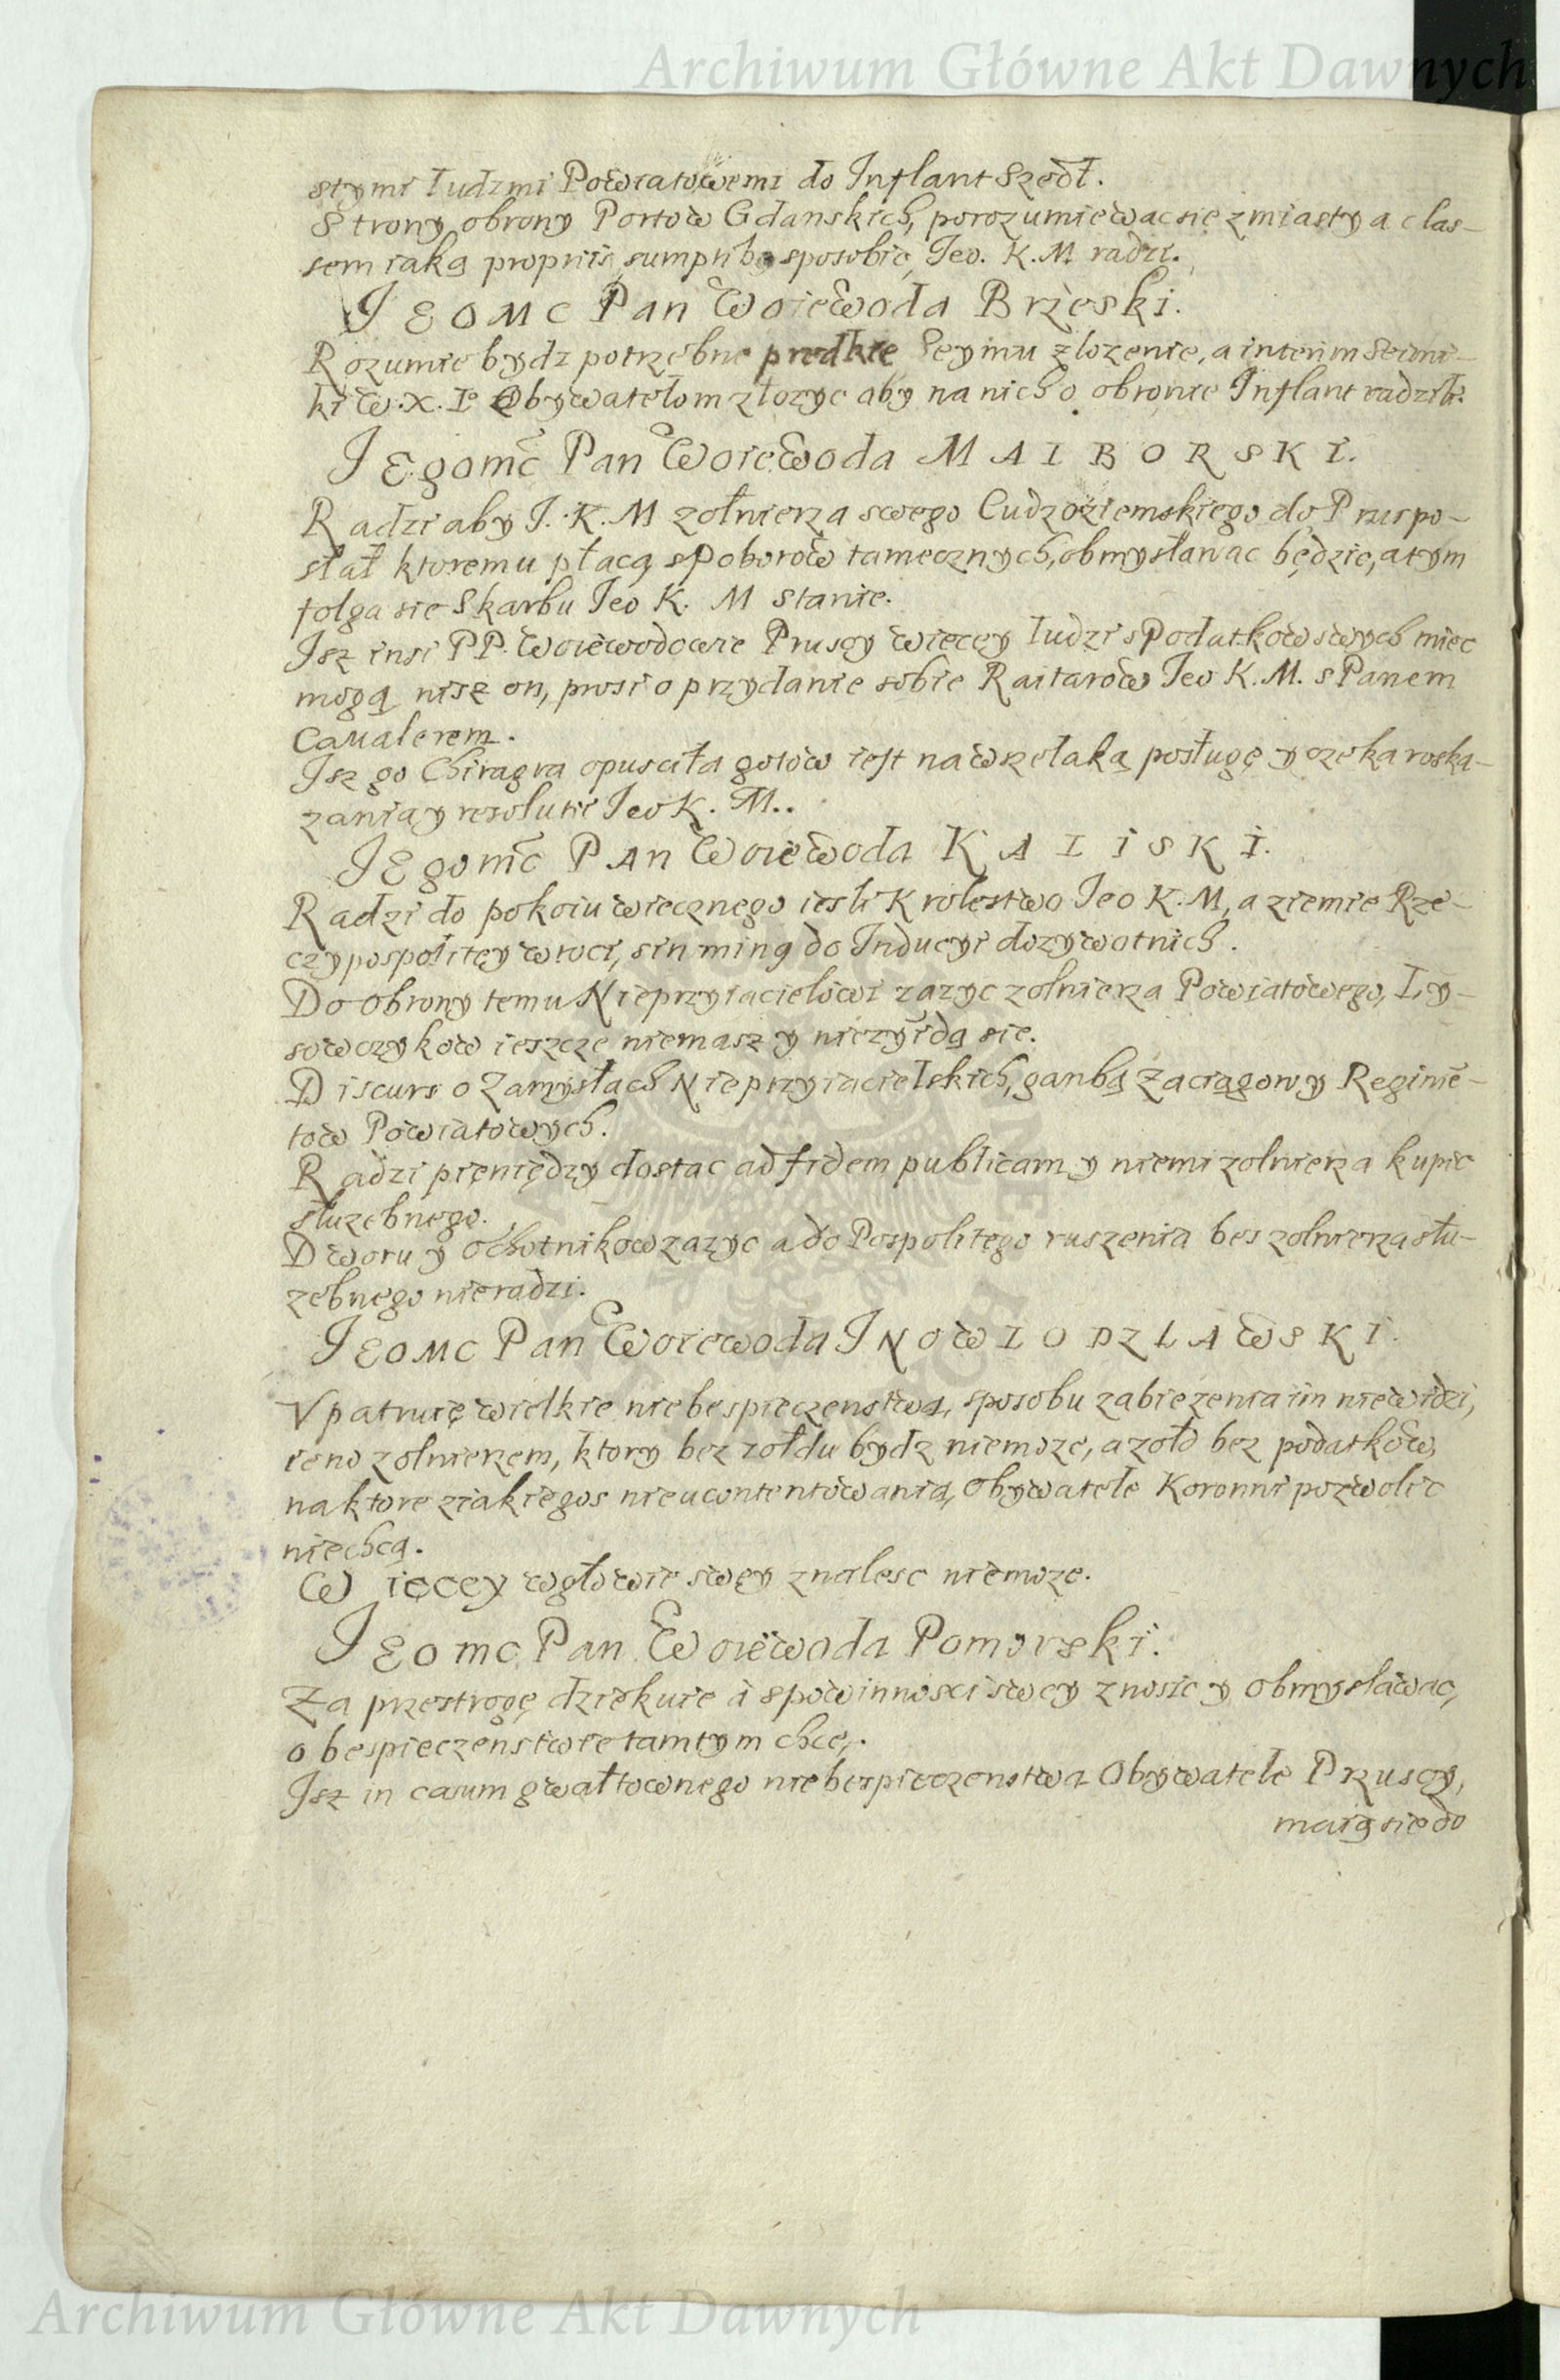 Archiwum Główne Akt Dawnych
stymi ludzmi Powiatowemi do Inflant szedł.
Strony obrony Portow Gdanskich, porozumiewac się z miasty a clas-
sem iaką propriis sumptibo sposobic, Jeo. K. M radzi.
JEOMC Pan Woiewoda Brzeski.
Rozumie bydz potrzebne prędkie Seymu złozenie, a interim Seimi-
ki W. X. Lo Obywatelom złozyc aby na nich o obronie Inflant radzili.
JEgomc Pan Woiewoda MALBORSKI.
Radzi aby J. K. M zołnierza swego Cudzoziemskiego do Prus po-
słał ktoremu płacą s Poborow tamecznych, obmysławac będzie, a tym
folga sie Skarbu Jeo K. M stanie.
Isz insi PP. Woiewodowie Pruscy więcey ludzi s Podatkow swych miec
mogą nisz on, prosi o przydanie sobie Raitarow Jeo K. M. s Panem
Caualerem.
Isz go Chiragra opusciła gotow iest na wszelaką posługę y czeka roska-
zania y resolutii Jeo K. M..
JEgomc PAn Woiewoda KALISKI.
Radzi do pokoiu wiecznego iesli Krolestwo Jeo K. M, a ziemie Rze-
czypospolitey wroci, sin ming do Inducyi dozywotnich.
Do obrony temu Nieprzyiacielowi zazyc zołnierza Powiatowego, Ly-
sowczykow ieszcze niemasz y niezyidą sie.
Discurs o Zamysłach Nieprzyiacielskich, ganbą Zaciągowy Regimē-
tow Powiatowych.
Radzi pięniędzy dostac ad fidem publicam y niemi zołnierza kupic
słuzebnego.
Dworu y ochotnikow zazyc a do Pospolitego ruszenia bes zołnierza słu-
zebnego nieradzi.
JEOMC Pan Woiewoda INOWLODZLAWSKI.
Vpatruię wielkie niebespieczenstwa, sposobu zabiezenia im niewidzi,
ieno zołnierzem, ktory bez zołdu bydz niemoze, a zołd bez podatkow,
na ktore z iakiegos nieucontentowania, Obywatele Koronni pozwolic
niechcą.
Więcey w głowie swęy znalesc niemoze.
JEOmc Pan Woiewoda Pomorski.
Za przestrogę dziękuie i s powinnosci swey znosic y obmysławac,
o bespieczenstwie tamtym chce.
Isz in casum gwałtownego niebespieczenstwa Obywatele Pruscy,
maią sie do
Archiwum Główne Akt Dawnych